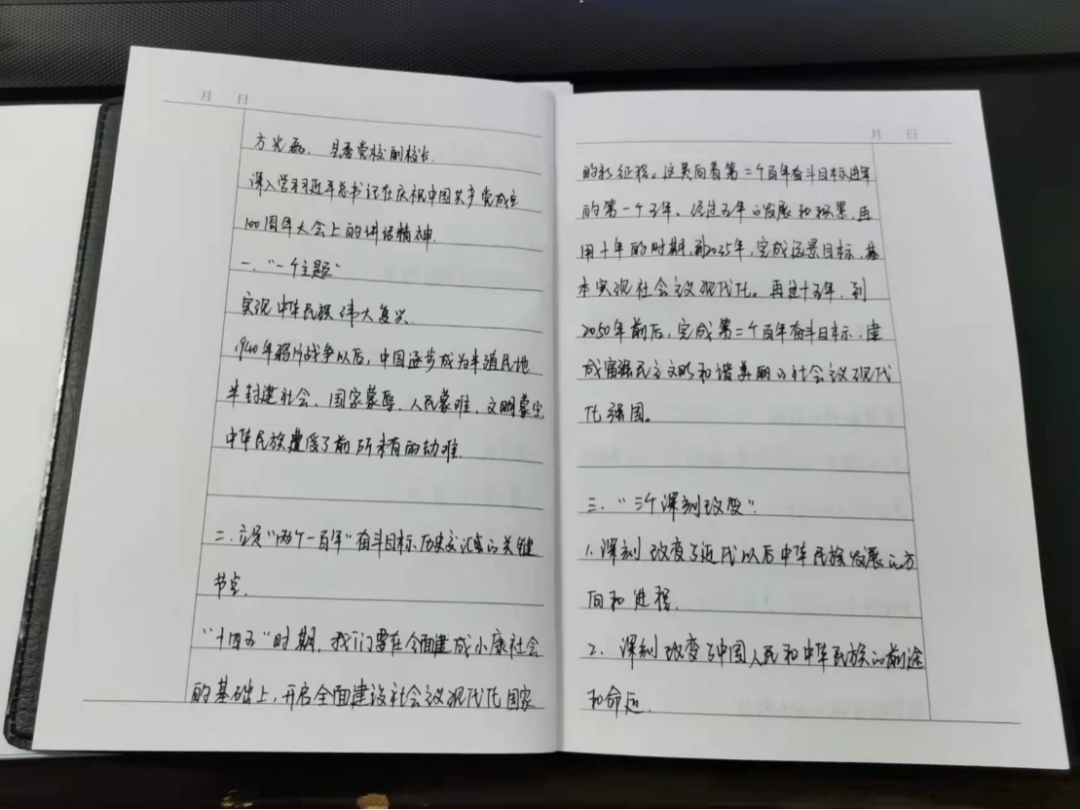 月 日
方光磊，县委党校副校长
深入学习习近平总书记在庆祝中国共产党成立
100周年大会上的讲话精神.
一、“一个主题”
实现中华民族伟大复兴.
1940年鸦片战争以后，中国逐步成为半殖民地
半封建社会、国家蒙辱、人民蒙难、文明蒙尘
中华民族遭受了前所未有的劫难.
二、立足“两个一百年”奋斗目标历史交汇的关键
节点.
“十四五”时期，我们要在全面建成小康社会
的基础上，开启全面建设社会议现代化国家
月 日
的新征程。这是向着第二个百年奋斗目标进军
的第一个五年，经过五年的发展和积累，再
用十年的时期，到2035年，完成远景目标，基
本实现社会议现代化。再过十五年，到
2050年前后，完成第二个百年奋斗目标，建
成富强民主文明和谐美丽的社会议现代
化强国。
三、“三个深刻改变”：
1. 深刻改变了近代以后中华民族发展的方
向和进程.
2. 深刻改变了中国人民和中华民族的前途
和命运.